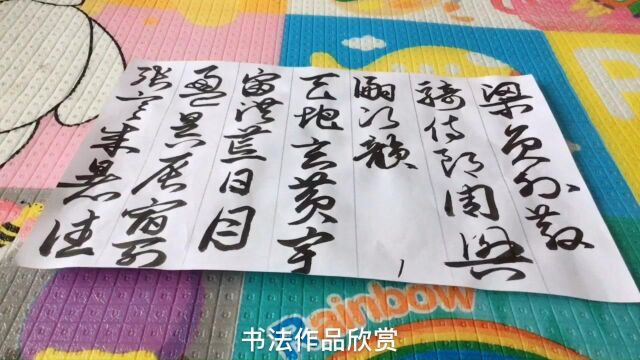 梁员外散
骑侍郎周兴
嗣次韵
天地玄黄宇
宙洪荒日月
盈昃辰宿列
张寒来暑往
Rainbow
书法作品欣赏